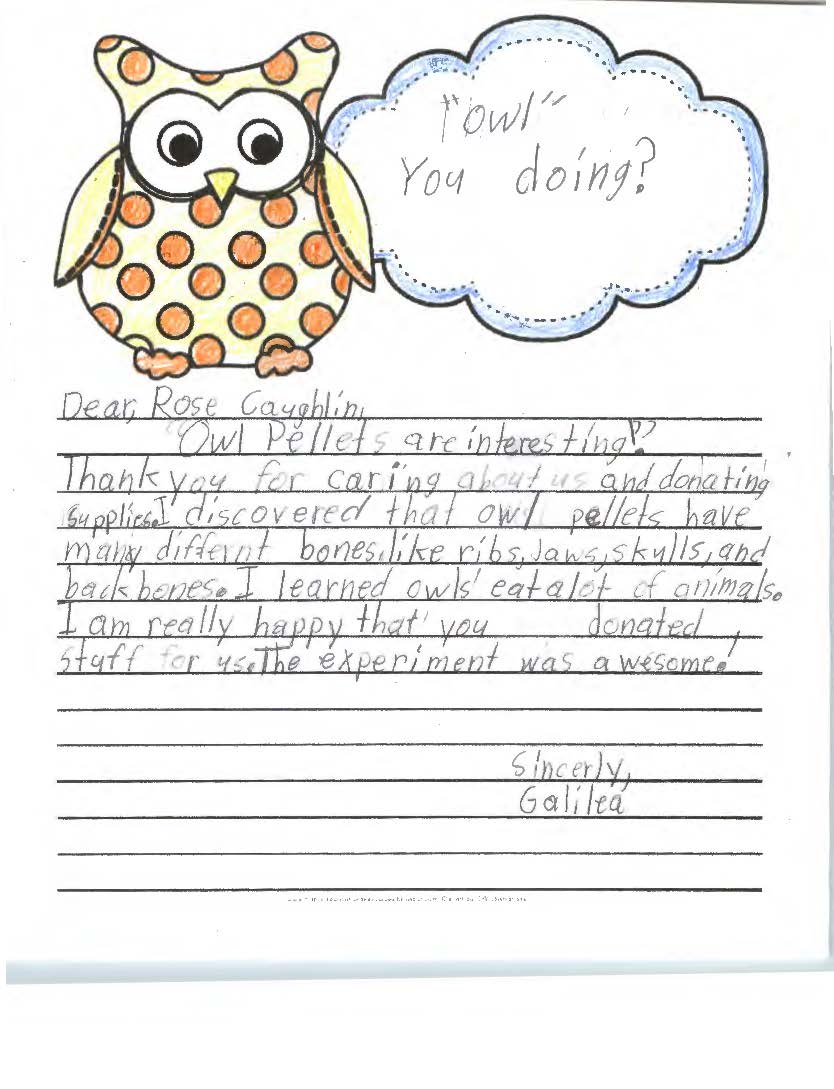 "Owl"
You doing?
Dear, Rose Caughlin,
"Owl Pellets are interesting!"
Thank you for caring about us and donating
supplies. I discovered that owl pellets have
many differnt bones, like ribs, Jaws, skulls, and
back bones. I learned owls' eat alot of animals.
I am really happy that you donated,
stuff for us. The experiment was awesome.
Sincerly,
Galilea